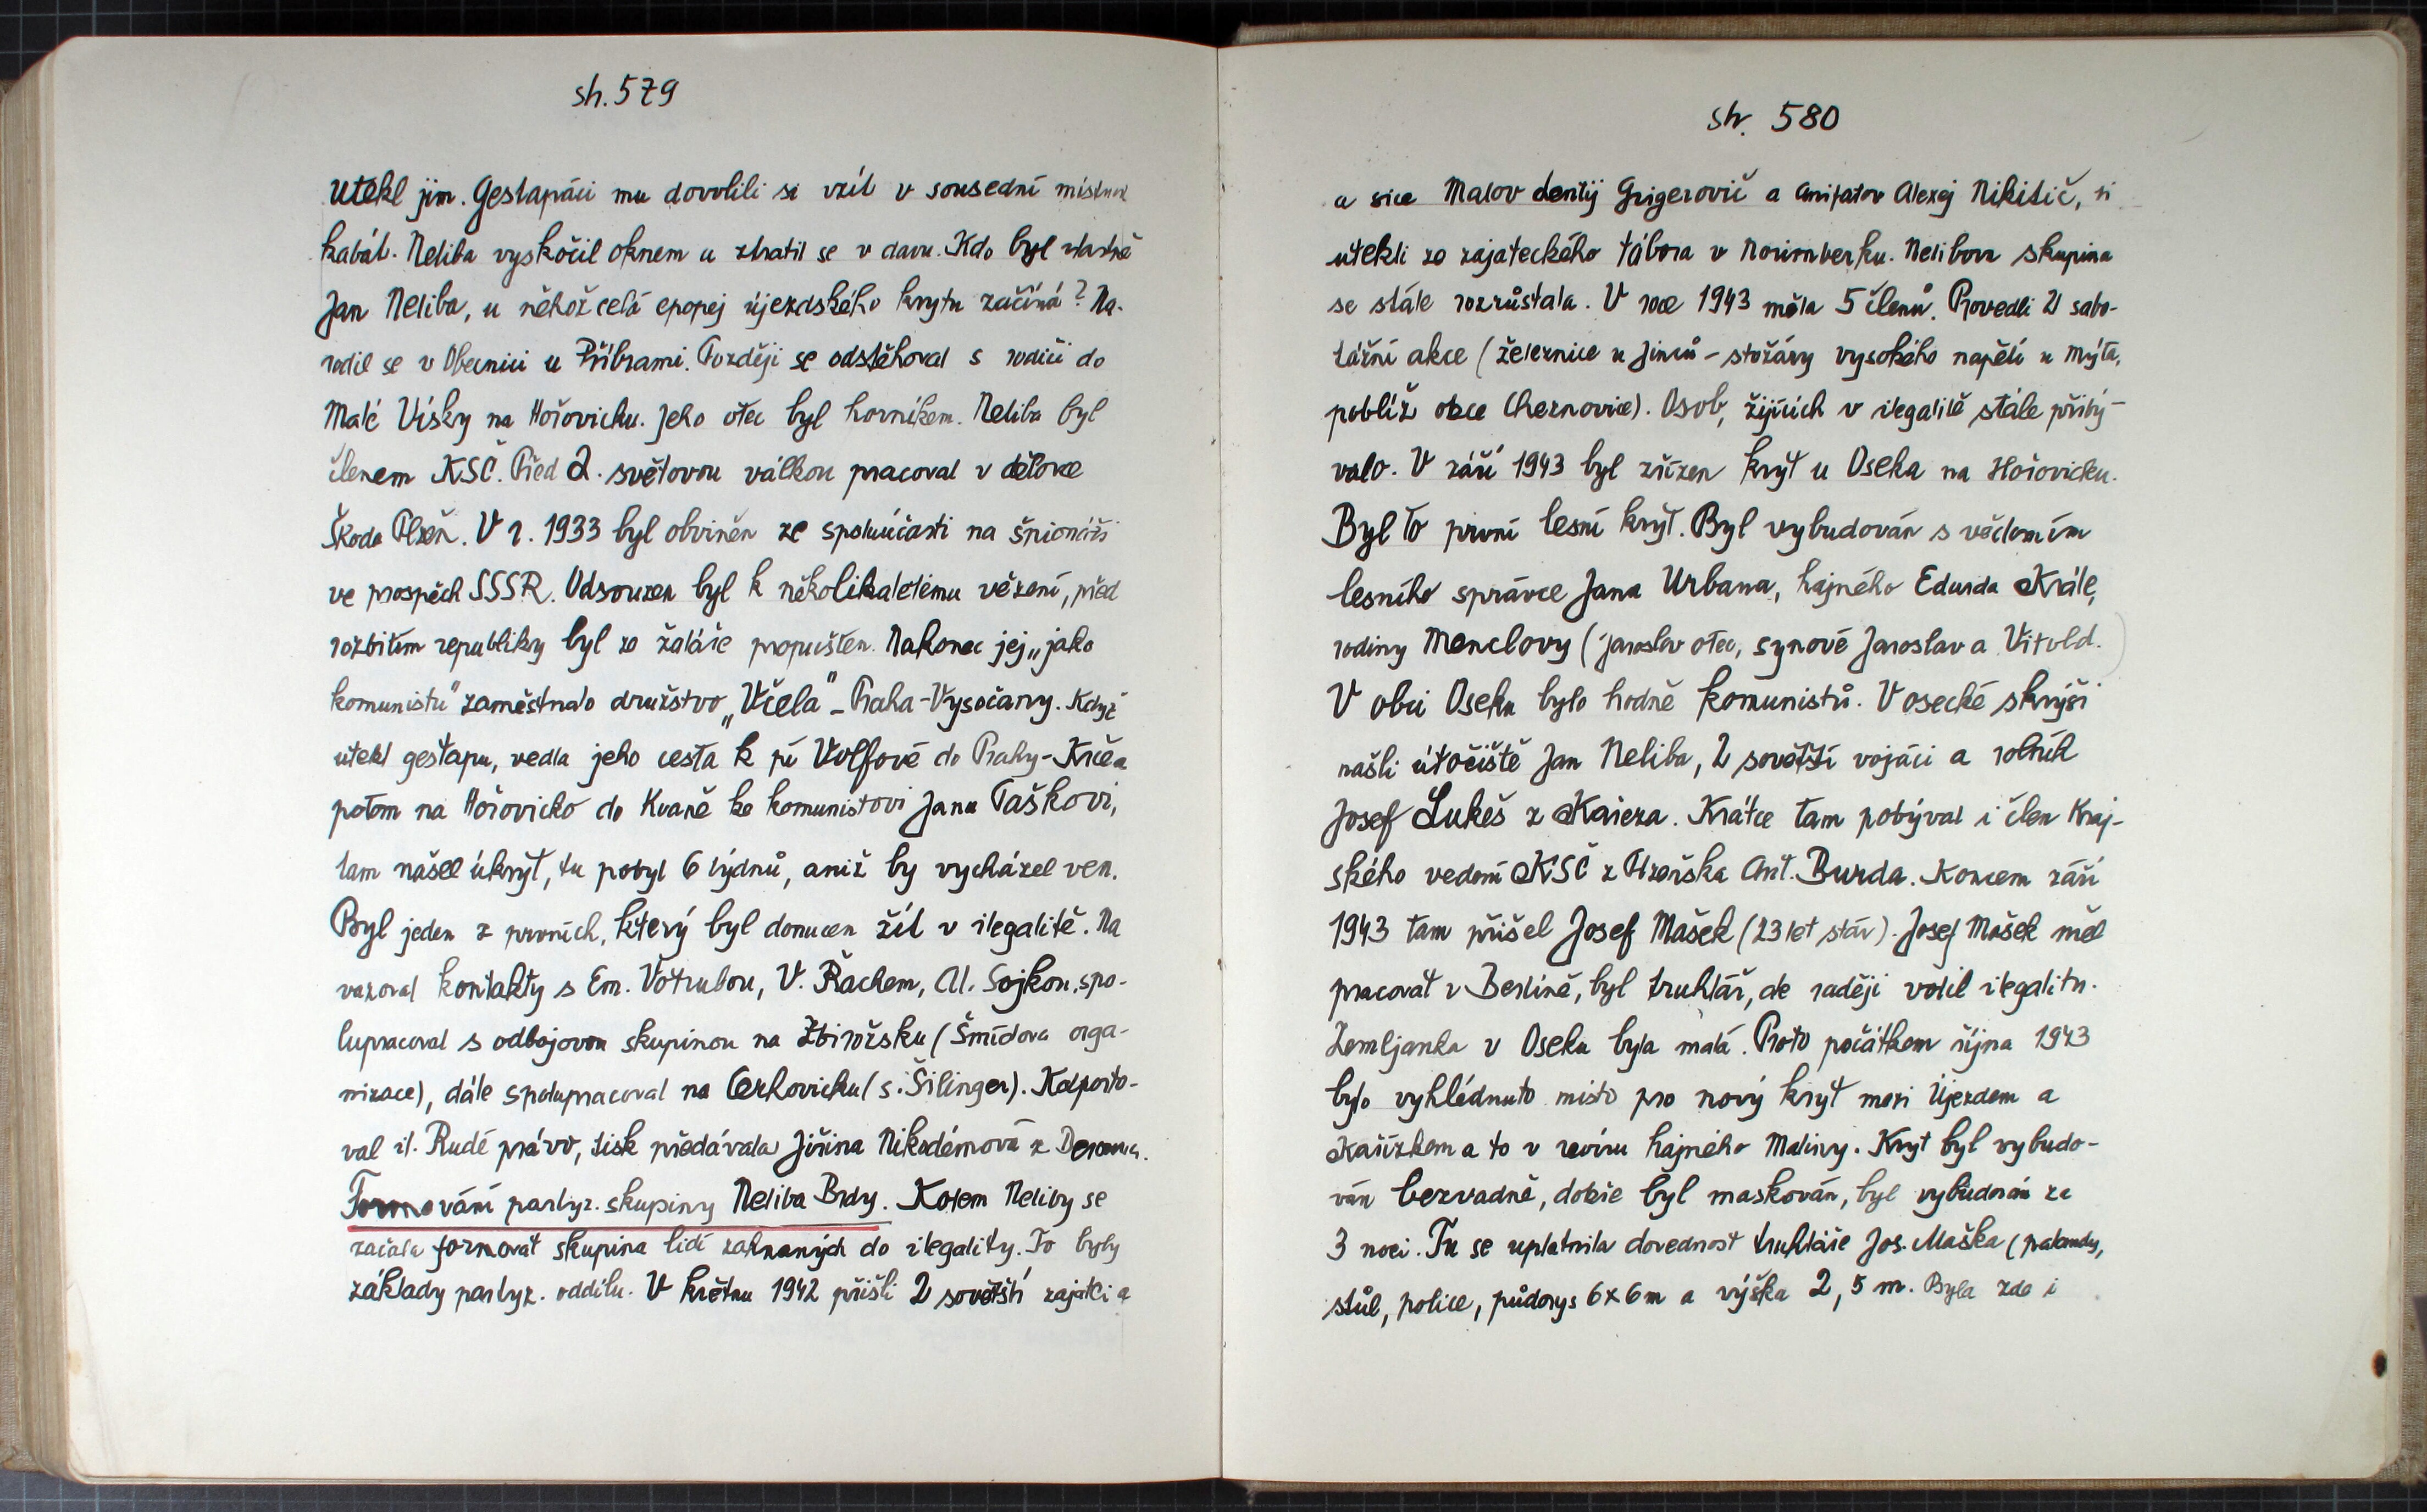 str. 579
utekl jim. Gestapáci mu dovolili si vzít v sousední místnos
kabát. Neliba vyskočil oknem a ztratil se v davu. Kdo byl vlastně
Jan Neliba, u něhož celá epopej újezdského krytu začíná? Na-
rodil se v Obecnici u Příbrami. Později se odstěhoval s rodiči do
Malé Vísky na Hořovicku. Jeho otec byl horníkem. Neliba byl
členem KSČ. Před 2. světovou válkou pracoval v dělovce
Škoda Plzeň. V r. 1933 byl obviněn ze spoluúčasti na špionáži
ve prospěch SSSR. Odsouzen byl k několikaletému vězení, před
rozbitím republiky byl ze žaláře propuštěn. Nakonec jej „jako
komunistu" zaměstnalo družstvo „Včela" - Praha-Vysočany. Když
utekl gestapu, vedla jeho cesta k pí Volfové do Prahy-Krče a
potom na Hořovicko do Kvaně ke komunistovi Janu Taškovi,
tam našel úkryt, tu pobyl 6 týdnů, aniž by vycházel ven.
Byl jeden z prvních, který byl donucen žít v ilegalitě. Na
vazoval kontakty s Em. Votrubou, V. Řachem, Al. Sojkou, spo-
lupracoval s odbojovou skupinou na Zbirožsku (Šmídova orga-
nizace), dále spolupracoval na Cerhovicku (s. Šilinger). Kolporto-
val il. Rudé právo, tisk předávala Jiřina Nikodémová z
Formování partyz. skupiny Neliba Brdy. Kolem Neliby se
začala formovat skupina lidí zahnaných do ilegality. To byly
základy partyz. oddílu. V květnu 1942 přišli 2 sovětští zajatci a
str. 580
a sice Malov Grigerovič a Anifatov Alexej Nikitič, ti
utekli ze zajateckého tábora v Norimberku. Nelibova skupina
se stále rozrůstala. V roce 1943 měla 5 členů. Provedli 2 sabo-
tážní akce (železnice u Jinců - stožáry vysokého napětí u Mýta,
poblíž obce Cheznovice). Osob, žijících v ilegalitě stále přibý-
valo. V září 1943 byl zřízen kryt u Oseka na Hořovicku.
Byl to první lesní kryt. Byl vybudován s vědomím
lesního správce Jana Urbana, hajného Eduarda Krále,
rodiny Menclovy (Jaroslav otec, synové Jaroslav a Vitold.)
V obci Oseku bylo hodně komunistů. V osecké skrýši
našli útočiště Jan Neliba, 2 sovětští vojáci a rolník
Josef Lukeš z Kařeza. Krátce tam pobýval i člen Kraj-
ského vedení KSČ z Plzeňska Ant. Burda. Koncem září
1943 tam přišel Josef Mašek (23 let stár). Josef Mašek měl
pracovat v Berlíně, byl truhlář, ale raději volil ilegalitu.
Zemljanka v Oseku byla malá. Proto počátkem října 1943
bylo vyhlédnuto místo pro nový kryt mezi Újezdem a
Kařízkem a to v revíru hajného Maliny. Kryt byl vybudo-
ván bezvadně, dobře byl maskován, byl vybudován za
3 noci. Tu se uplatnila dovednost truhláře Jos. Maška (palandy,
stůl, police, půdorys 6x6m a výška 2,5 m. Byla zde i